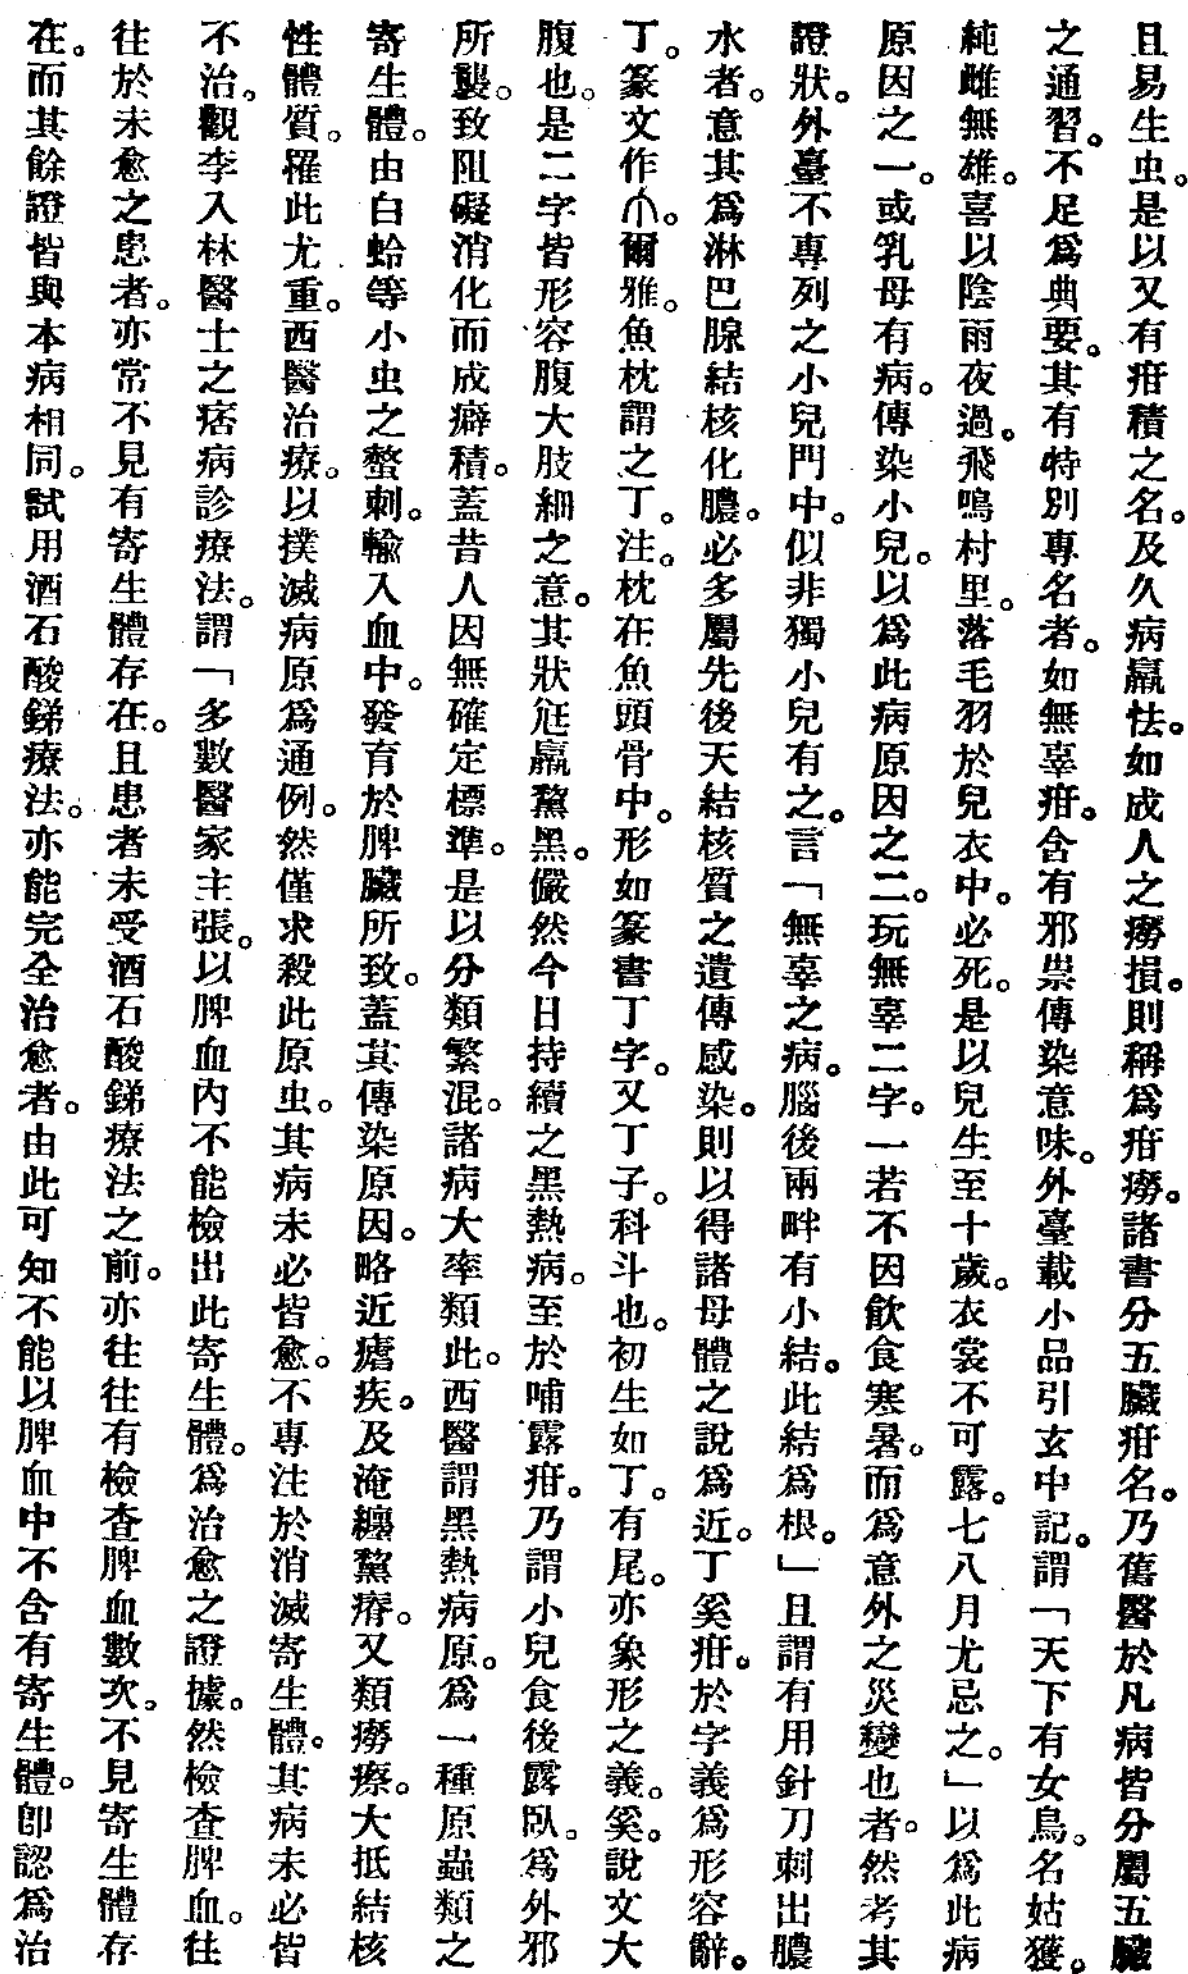 且易生虫。是以又有疳積之名。及久病羸怯。如成人之癆損。則稱爲疳癆。諸書分五臟疳名。乃舊醫於凡病皆分屬五臟
之通習。不足爲典要。其有特別專名者。如無辜疳。含有邪祟傳染意味。外臺載小品引玄中記。謂「天下有女鳥。名姑獲。
純雌無雄。喜以陰雨夜過。飛鳴村里。落毛羽於兒衣中。必死。是以兒生至十歲。衣裳不可露。七八月尤忌之。」以爲此病
原因之一。或乳母有病。傳染小兒。以爲此病原因之二。玩無辜二字。一若不因飲食寒暑。而爲意外之災變也者。然考其
證狀。外臺不專列之小兒門中。似非獨小兒有之。言「無辜之病。腦後兩畔有小結。此結爲根。」且謂有用針刀刺出膿
水者。意其爲淋巴腺結核化膿。必多屬先後天結核質之遺傳感染。則以得諸母體之說爲近。丁奚疳。於字義爲形容辭。
丁。篆文作。爾雅。魚枕謂之丁。注。枕在魚頭骨中。形如篆書丁字。又丁子。科斗也。初生如丁。有尾。亦象形之義。奚。說文大
腹也。是二字皆形容腹大肢細之意。其狀尪羸黧黑。儼然今日持續之黑熱病。至於哺露疳。乃謂小兒食後露臥。爲外邪
所襲。致阻礙消化而成癖積。蓋昔人因無確定標準。是以分類繁混。諸病大率類此。西醫謂黑熱病原。爲一種原蟲類之
寄生體。由白蛉等小虫之螫刺。輸入血中。發育於脾臟所致。蓋其傳染原因。略近瘧疾。及淹纏黧瘠。又類癆瘵。大抵結核
性體質。罹此尤重。西醫治療。以撲滅病原爲通例。然僅求殺此原虫。其病未必皆愈。不專注於消滅寄生體。其病未必皆
不治。觀李入林醫士之痞病診療法。謂「多數醫家主張。以脾血內不能檢出此寄生體。爲治愈之證據。然檢查脾血。往
往於未愈之患者。亦常不見有寄生體存在。且患者未受酒石酸銻療法之前。亦往往有檢查脾血數次。不見寄生體存
在。而其餘證皆與本病相同。試用酒石酸銻療法。亦能完全治愈者。由此可知不能以脾血中不含有寄生體。卽認爲治